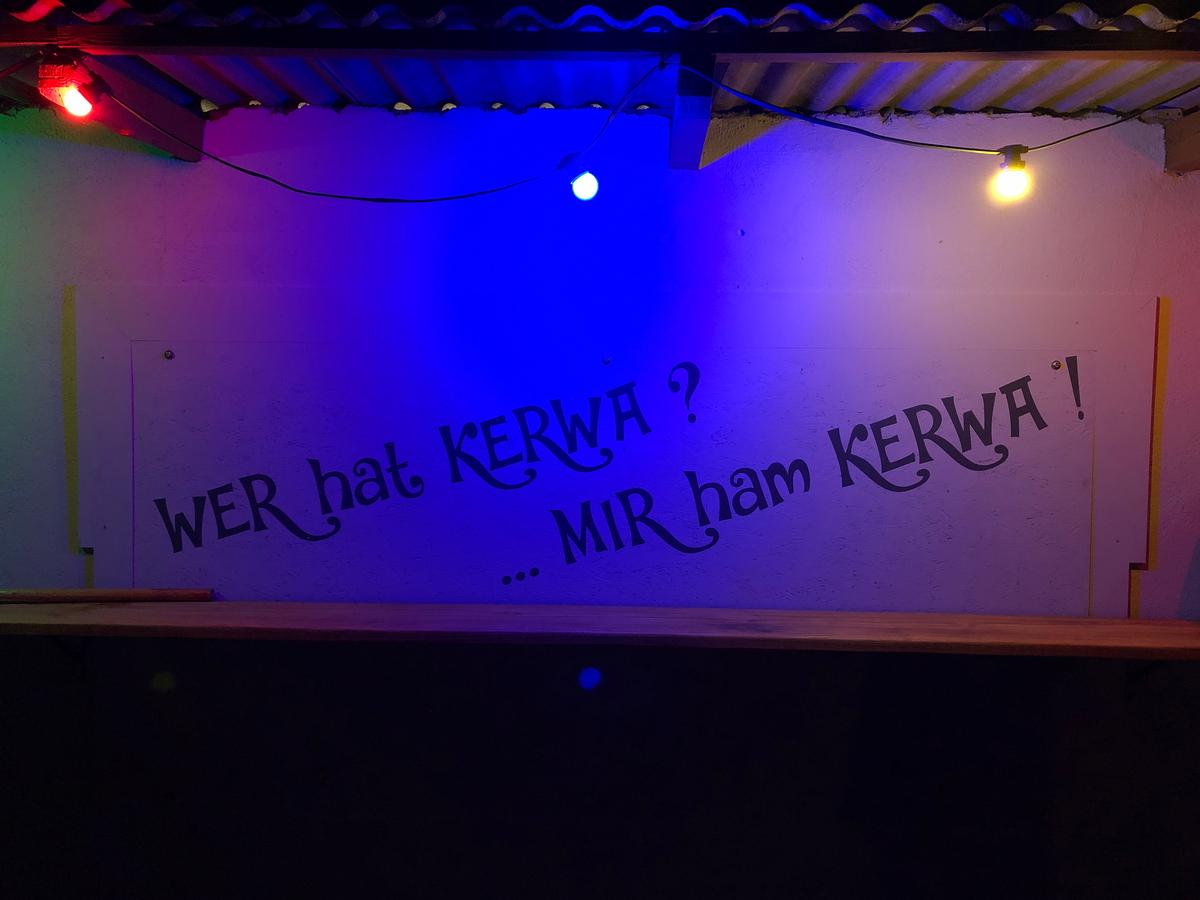 WER hat KERWA ?
... MIR ham KERWA !